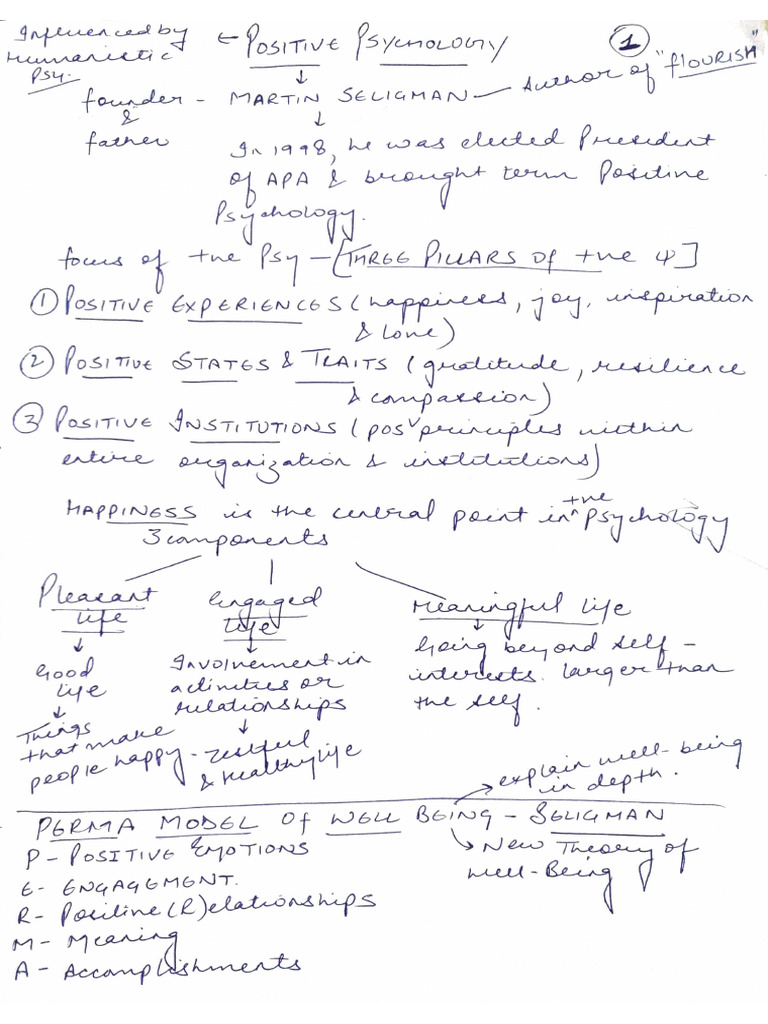 Influenced by
Humanistic
Psy.
← POSITIVE PSYCHOLOGY
①
founder & father - MARTIN SELIGMAN — Author of "flOURISH"
In 1998, he was elected President
of APA & brought term Positive
Psychology.
focus of +ve Psy - [THREE PILLARS Of +ve Ψ]
① POSITIVE EXPERIENCES (happiness, joy, inspiration
& love)
② POSITIVE STATES & TRAITS (gratitude, resilience
& compassion)
③ POSITIVE INSTITUTIONS (pos principles within
entire organization & institutions)
HAPPINESS is the central point in +ve psychology
3 components
Pleasant
life
↓
Good
life
↓
Things
that make
people happy -
Engaged
life
↓
Involvement in
activities or
relationships
↓
zestful
& Healthy life
Meaningful life
↓
Going beyond self -
interests. larger than
the self.
PERMA MODEL Of WELL BEING - SELIGMAN
explain well-being
in depth.
New Theory of
Well-Being
P - POSITIVE EMOTIONS
E - ENGAGEMENT.
R - Positive (R)elationships
M - Meaning
A - Accomplishments